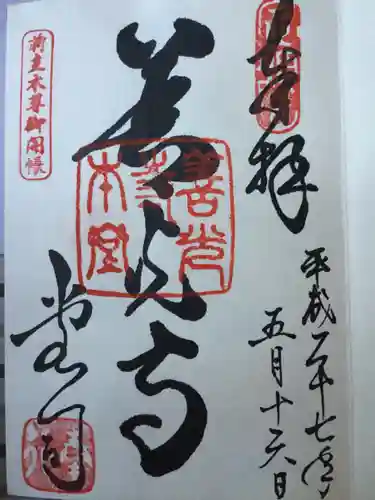 奉拝
平成二十七年
五月十六日
善光寺
善光寺本堂
前立本尊御開帳
堂司